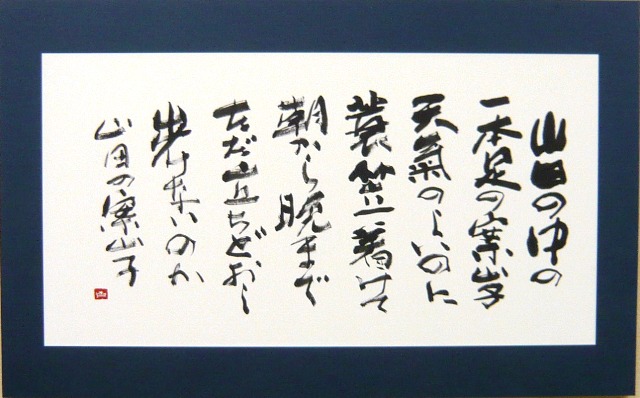 山田の中の
一本足の案山子
天氣のよいのに
蓑笠着けて
朝から晩まで
ただ立ちどおし
歩けないのか
山田の案山子